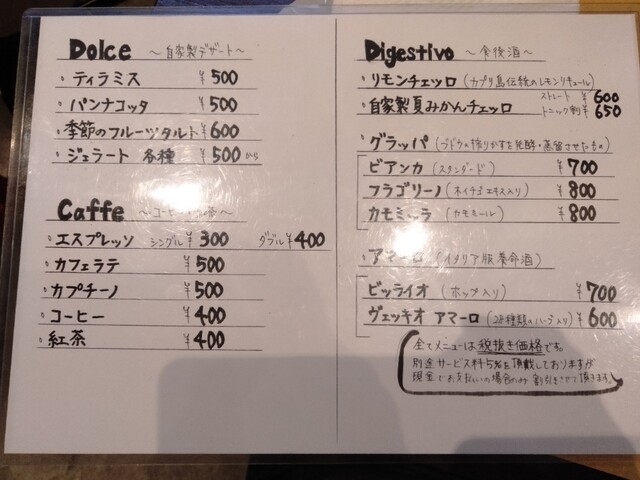 Dolce ～自家製デザート～
・ティラミス ¥500
・パンナコッタ ¥500
・季節のフルーツタルト ¥600
・ジェラート 各種 ¥500から
Caffe ～コーヒー・茶～
・エスプレッソ シングル ¥300 ダブル ¥400
・カフェラテ ¥500
・カプチーノ ¥500
・コーヒー ¥400
・紅茶 ¥400
Digestivo ～食後酒～
・リモンチェッロ (カプリ島伝統のレモンリキュール)
・自家製夏みかんチェッロ ストレート ¥600
トニック割 ¥650
・グラッパ (ブドウの搾りかすを発酵・蒸留させたもの)
ビアンカ (スタンダード) ¥700
フラゴリーノ (ネイチゴエキス入り) ¥800
カモミッラ (カモミール) ¥800
・アマーロ (イタリア版養命酒)
ビッライオ (ホップ入り) ¥700
ヴェッキオ アマーロ (28種類のハーブ入り) ¥600
全てメニューは税抜き価格です。
別途サービス料5%を頂戴しておりますが
現金でお支払いの場合のみ割引きさせて頂きます。